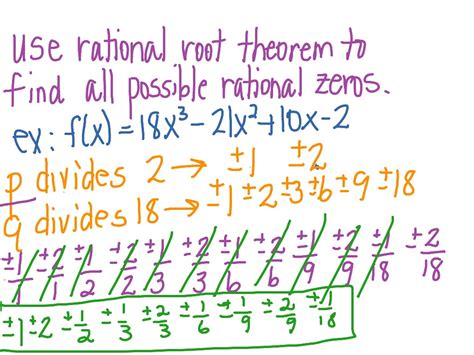 use rational root theorem to
find all possible rational zeros.
ex: f(x) = 18x³ - 21x² + 10x - 2
p divides 2 → ±1 ±2
q divides 18 → ±1 ±2 ±3 ±6 ±9 ±18
±1/1 ±2/1 ±1/2 ±2/2 ±1/3 ±2/3 ±1/6 ±2/6 ±1/9 ±2/9 ±1/18 ±2/18
±1 ±2 ±1/2 ±1/3 ±2/3 ±1/6 ±1/9 ±2/9 ±1/18